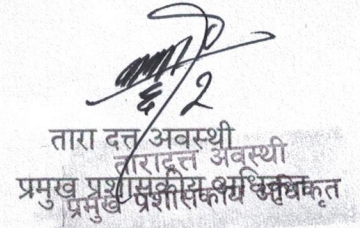 तारा दत्त अवस्थी
तारादत्त अवस्थी
प्रमुख प्रशासकीय अधिकृत
प्रमुख प्रशासकीय अधिकृत